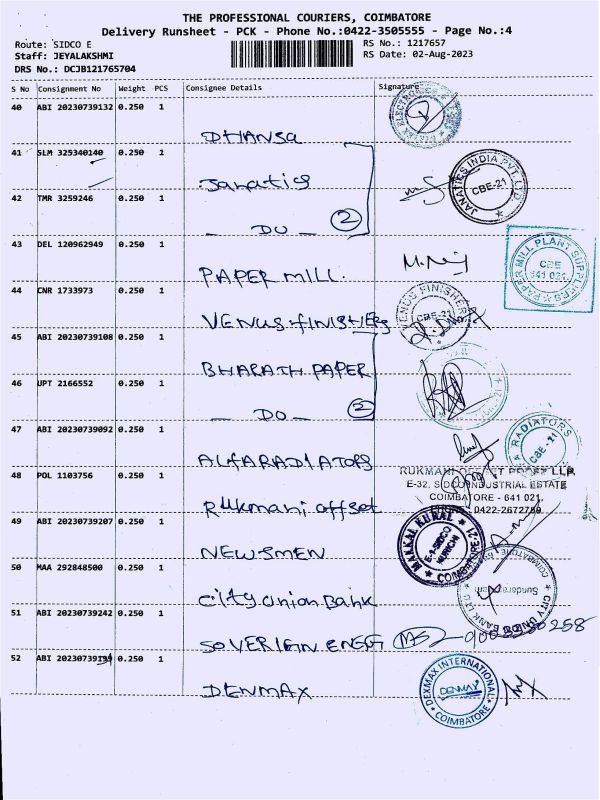 THE PROFESSIONAL COURIERS, COIMBATORE
Delivery Runsheet - PCK - Phone No.:0422-3505555 - Page No.:4
Route: SIDCO E
RS No.: 1217657
Staff: JEYALAKSHMI
RS Date: 02-Aug-2023
DRS No.: DCJB121765704
S No Consignment No Weight PCS Consignee Details Signature
40 ABI 20230739132 0.250 1
DHANSA
41 SLM 325340140 0.250 1
Janatics
JANATICS INDIA PVT. LTD CBE-21
42 TMR 3259246 0.250 1
- DO - 2
43 DEL 120962949 0.250 1
PAPER MILL.
PAPER MILL PLANT SUPPLIERS CBE 641 021
44 CNR 1733973 0.250 1
VENUS FINISHERS
VENUS FINISHERS CBE-21
45 ABI 20230739108 0.250 1
BHARATH PAPER
46 UPT 2166552 0.250 1
- DO - 2
47 ABI 20230739092 0.250 1
ALFA RADIATORS
RADIATORS CBE-21
48 POL 1103756 0.250 1
Rukmani offset
RUKMANI OFFSET PRESS LLP
E-32, SIDCO INDUSTRIAL ESTATE
COIMBATORE - 641 021.
0422-2672780
49 ABI 20230739207 0.250 1
NEWSMEN
MAKKAL KURAL E-1-SIDCO KURICHI COIMBATORE-21
50 MAA 292848500 0.250 1
City Union Bank
CITY UNION BANK LTD Sundarapuram COIMBATORE
51 ABI 20230739242 0.250 1
SOVERIGN ENGG
52 ABI 20230739194 0.250 1
DENMAX
DEXMAX INTERNATIONAL DENMAX COIMBATORE